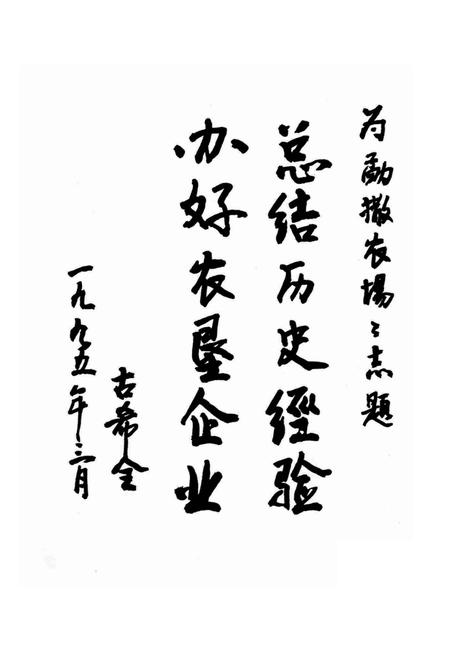 为勐撒农場〻志題
总结历史經验
办好农垦企业
古希全
一九九五年三月